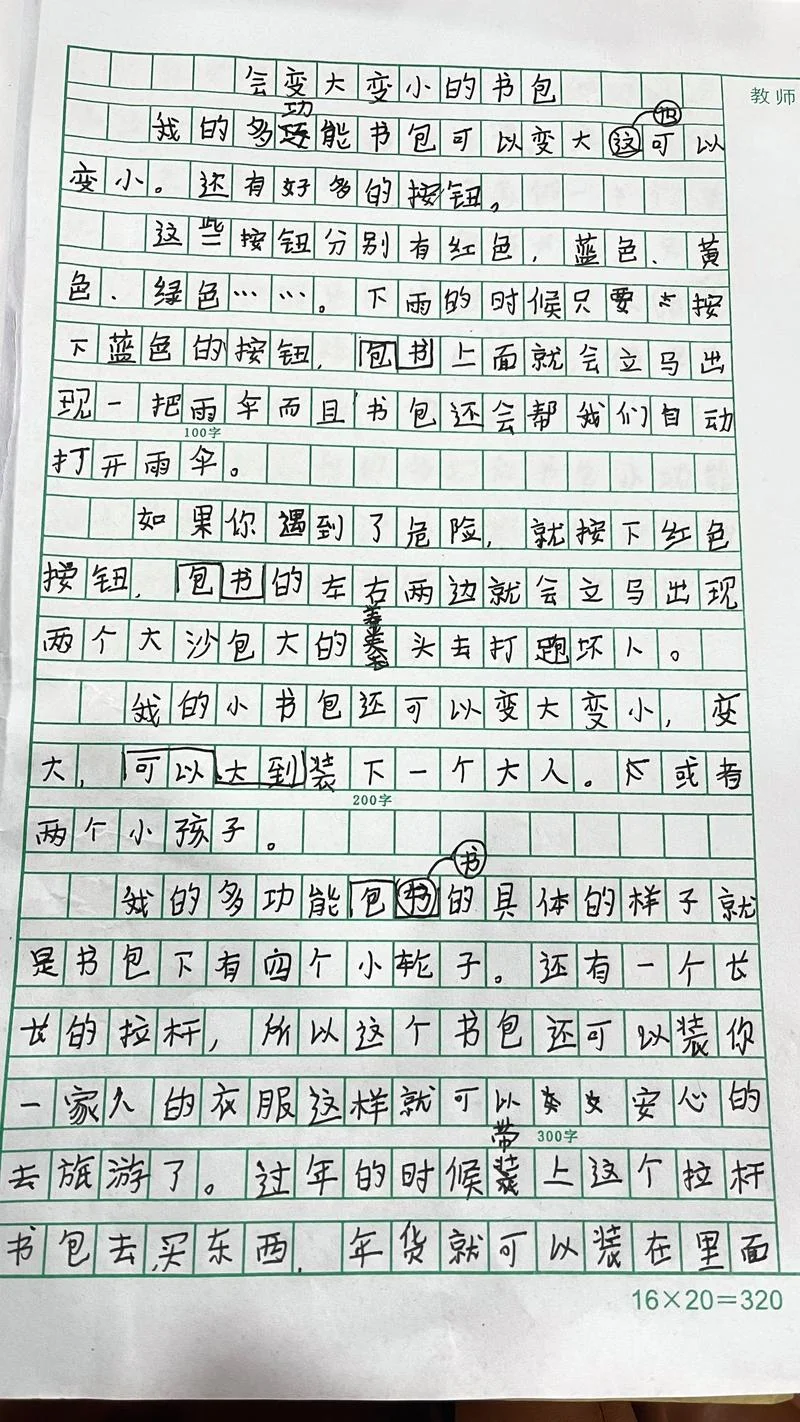 会变大变小的书包
教师
功
我的多能书包可以变大这可以
变小。还有好多的按钮。
这些按钮分别有红色，蓝色、黄
色、绿色……。下雨的时候只要点按
下蓝色的按钮，包书上面就会立马出
现一把雨伞而且书包还会帮我们自动
100字
打开雨伞。
如果你遇到了危险，就按下红色
按钮，包书的左右两边就会立马出现
两个大沙包大的头去打跑坏人。
我的小书包还可以变大变小，变
大，可以大到装下一个大人。或者
200字
两个小孩子。
书
我的多功能包书的具体的样子就
是书包下有四个小轮子。还有一个长
长的拉杆，所以这个书包还可以装你
一家人的衣服这样就可以安心的
带
300字
去旅游了。过年的时候装上这个拉杆
书包去买东西，年货就可以装在里面
16×20=320